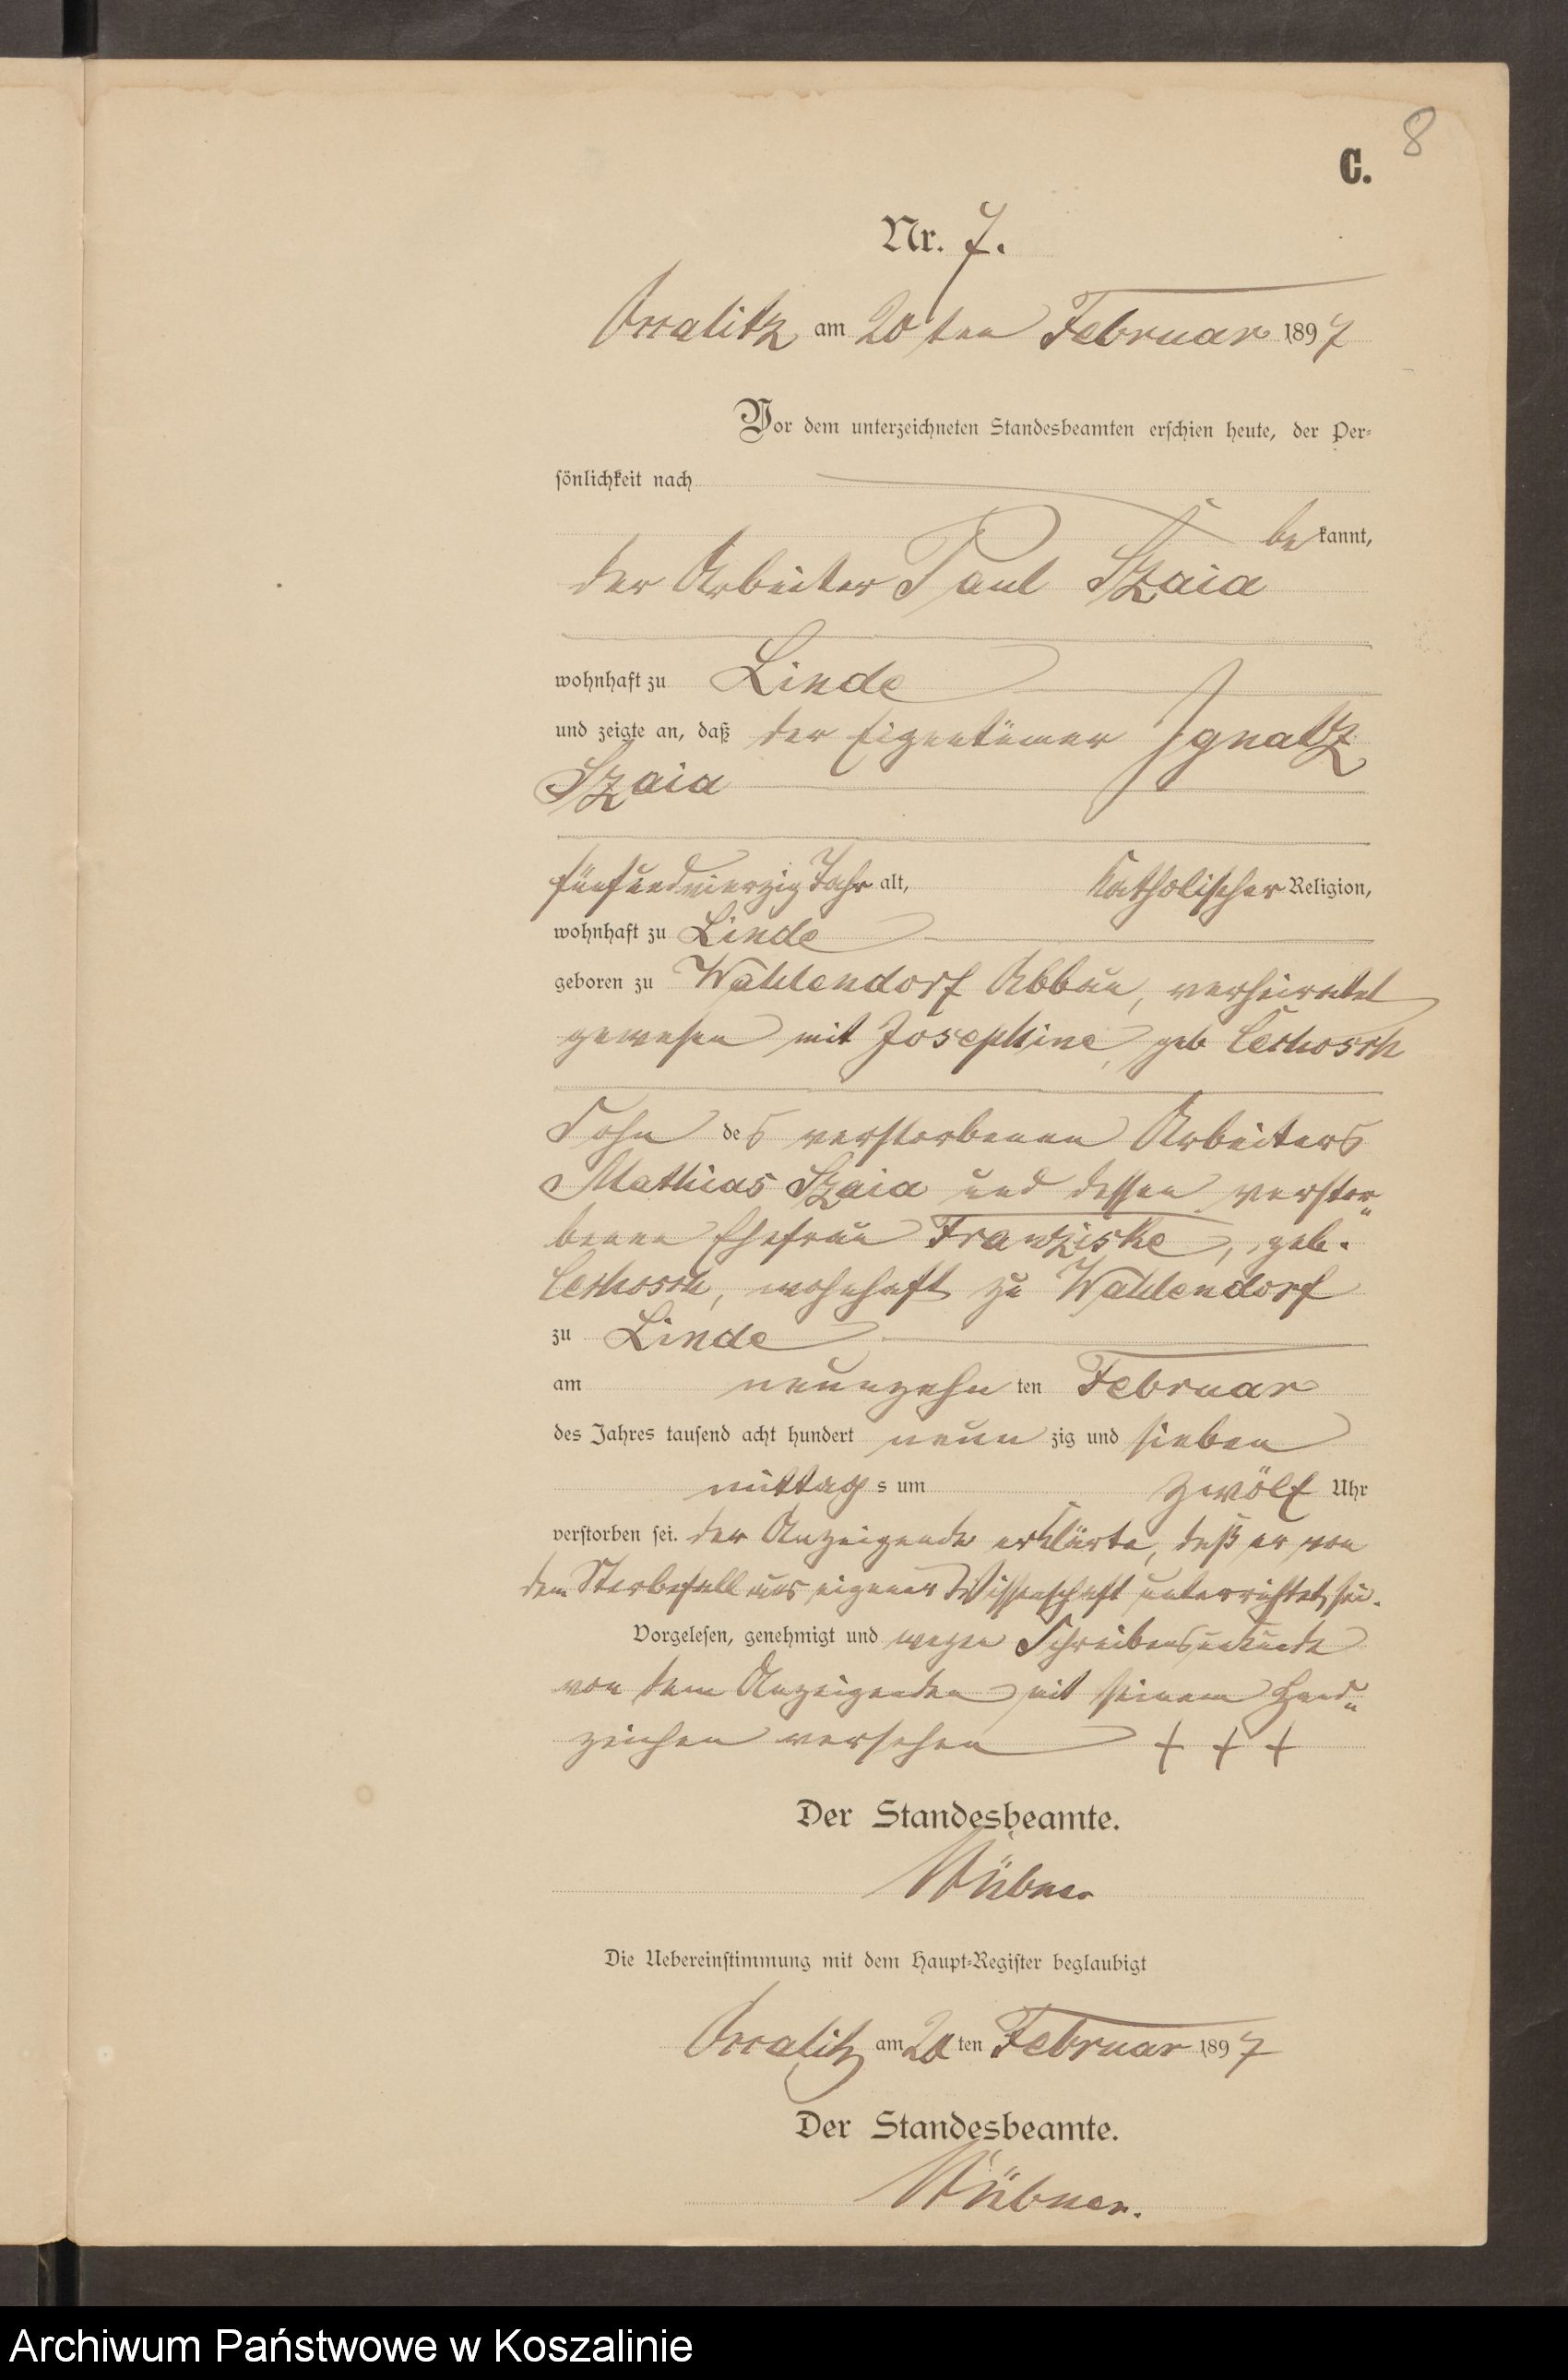 8
C.
Nr. 7.
am 20ten Februar 1897
Vor dem unterzeichneten Standesbeamten erschien heute, der Per-
sönlichkeit nach
bekannt,
der Arbeiter Paul Szaia
wohnhaft zu Linde
und zeigte an, daß der Eigentümer Ignatz
Szaia
fünfundvierzig Jahr alt, katholischer Religion,
wohnhaft zu Linde
geboren zu Wahlendorf Abbau, verheiratet
gewesen mit Josephine, geb
Sohn des verstorbenen Arbeiters
Mathias Szaia und dessen verstor„
benen Ehefrau Franziske, geb.
wohnhaft zu Wahlendorf
zu Linde
am neunzehn ten Februar
des Jahres tausend acht hundert neun zig und sieben
mittag s um zwölf Uhr
verstorben sei. der Anzeigende erklärte, daß er von
dem Sterbefall aus eigener Wissenschaft unterrichtet sei.
Vorgelesen, genehmigt und wegen Schreibensunkunde
von dem Anzeigenden mit seinem Hand„
zeichen versehen + + +
Der Standesbeamte.
Die Uebereinstimmung mit dem Haupt-Register beglaubigt
am 20 ten Februar 1897
Der Standesbeamte.
Archiwum Państwowe w Koszalinie